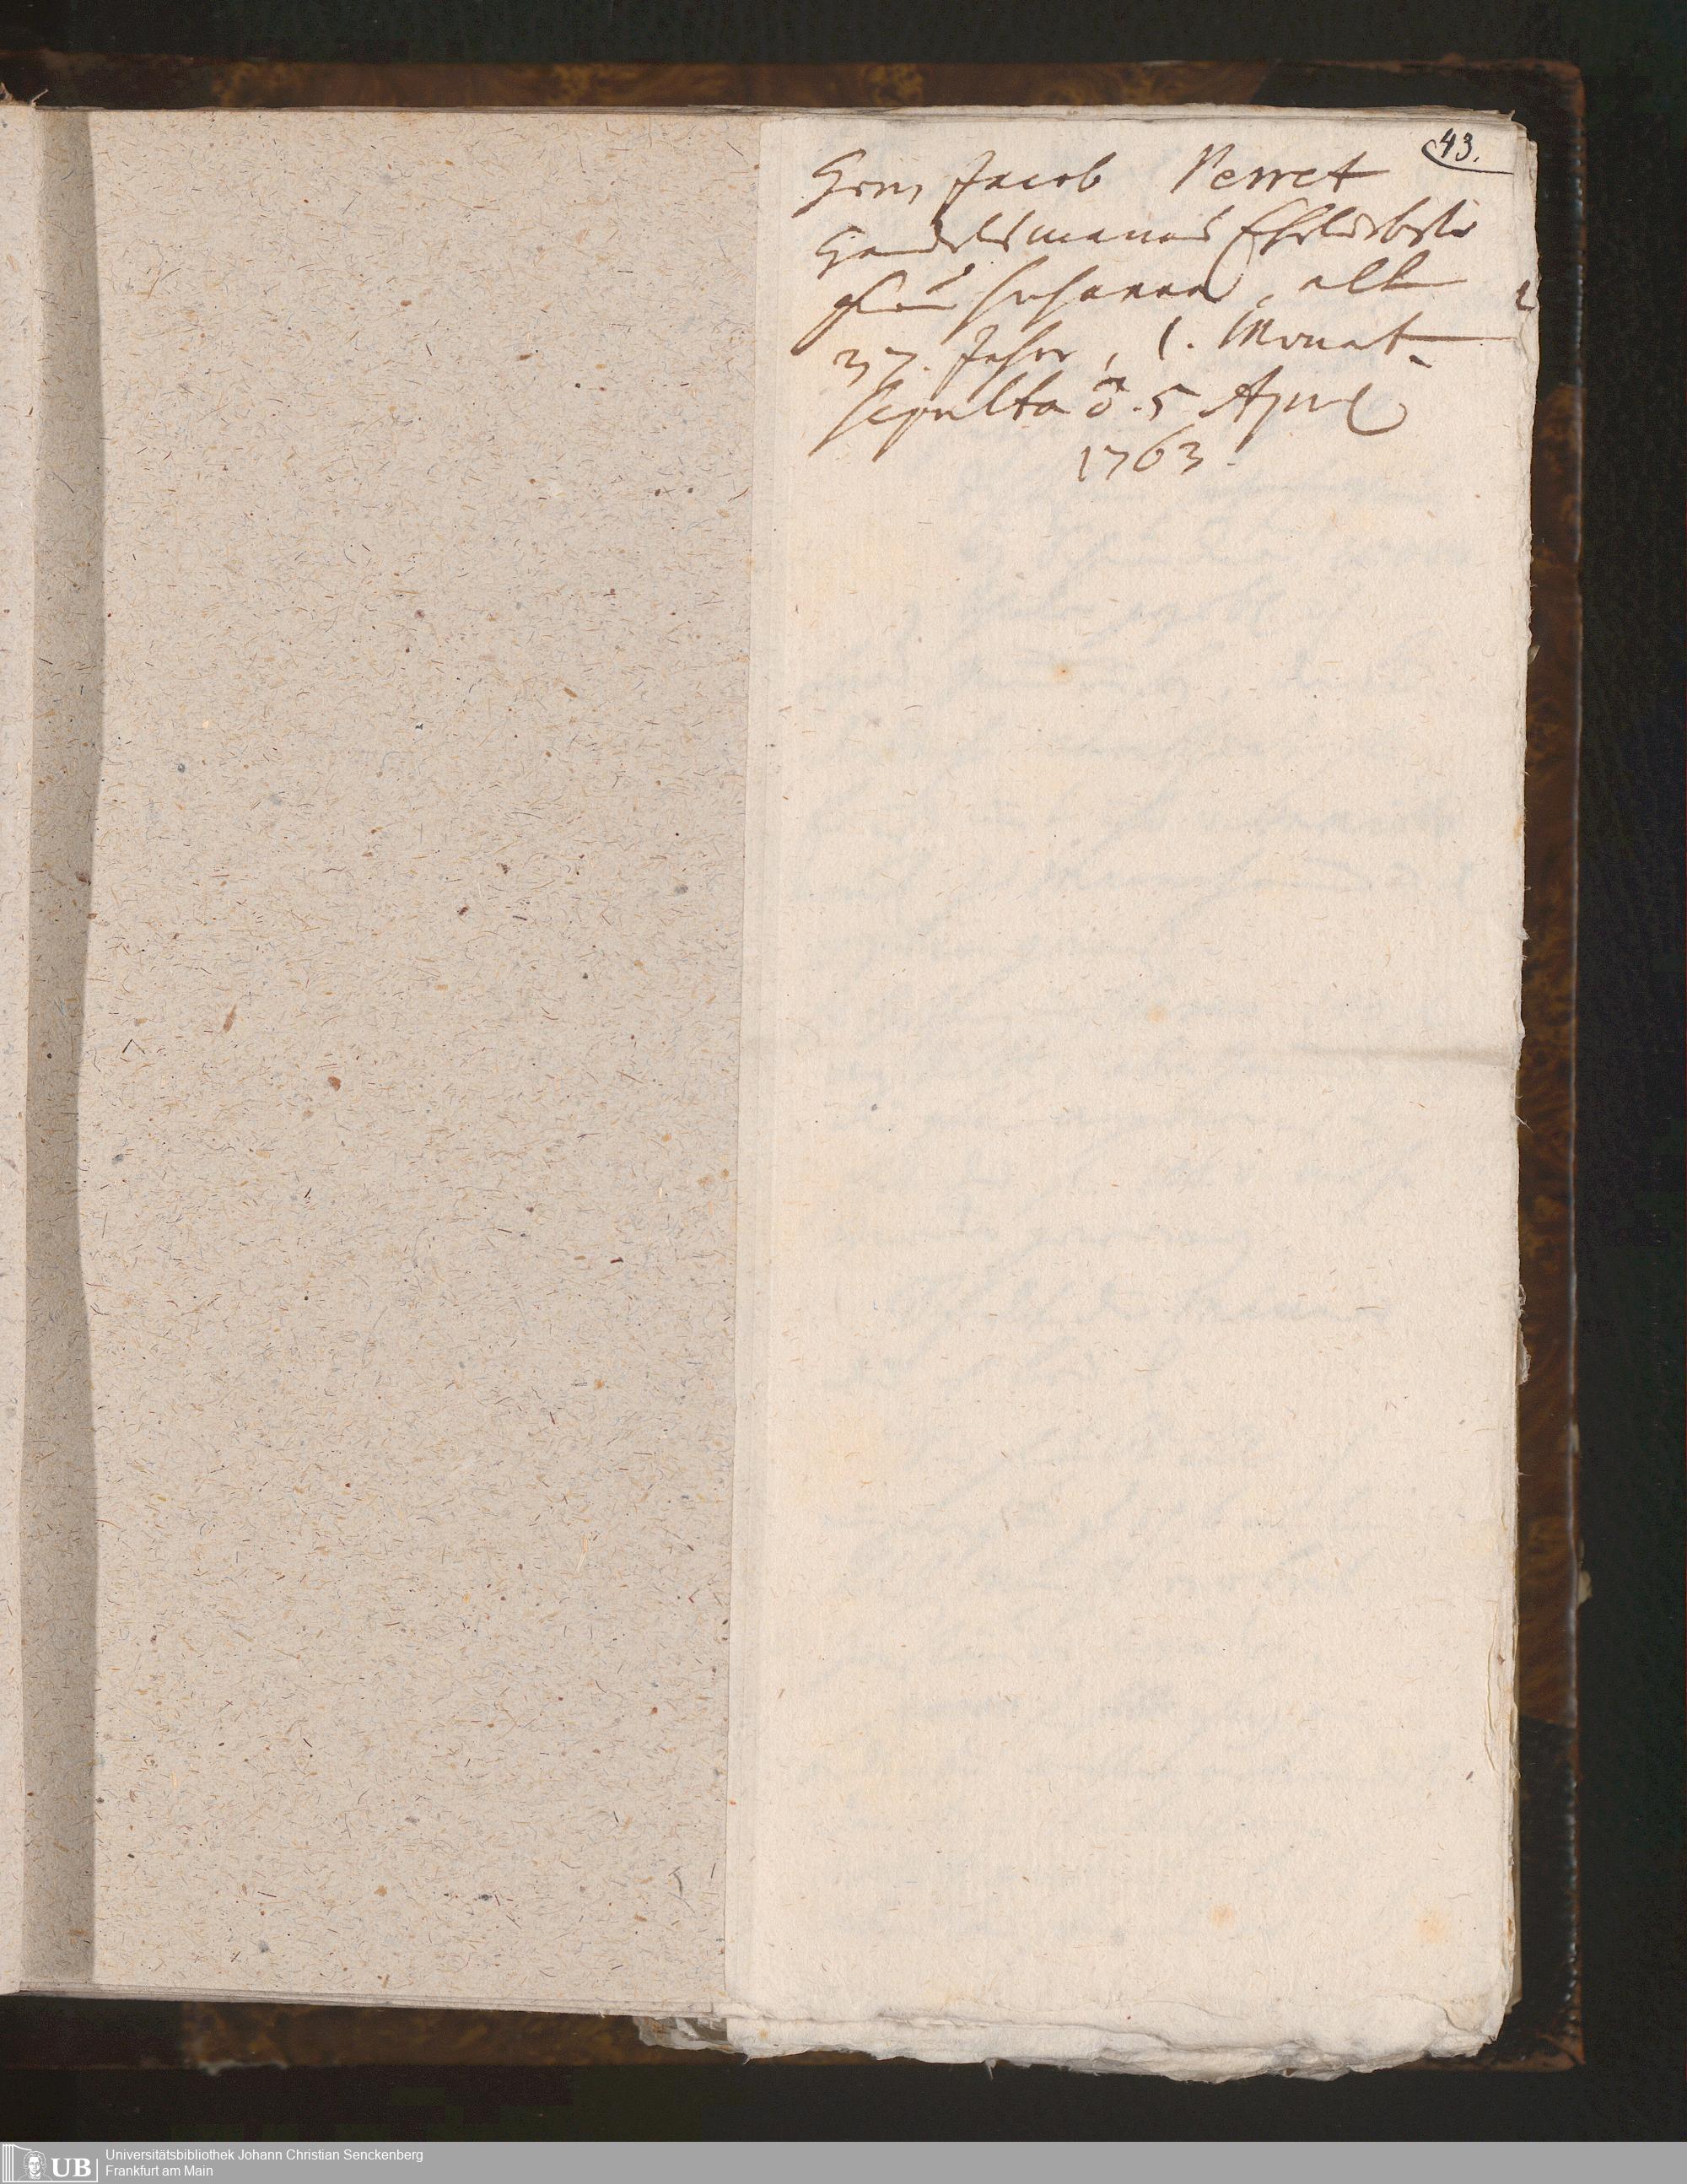 43.
Herrn Jacob Perret
Handelsmanns Eheliebste
Frau Susanna, alt
37. Jahr, 1. Monat.
sepulta ♂. 5 April
1763.
UB Universitätsbibliothek Johann Christian Senckenberg
Frankfurt am Main